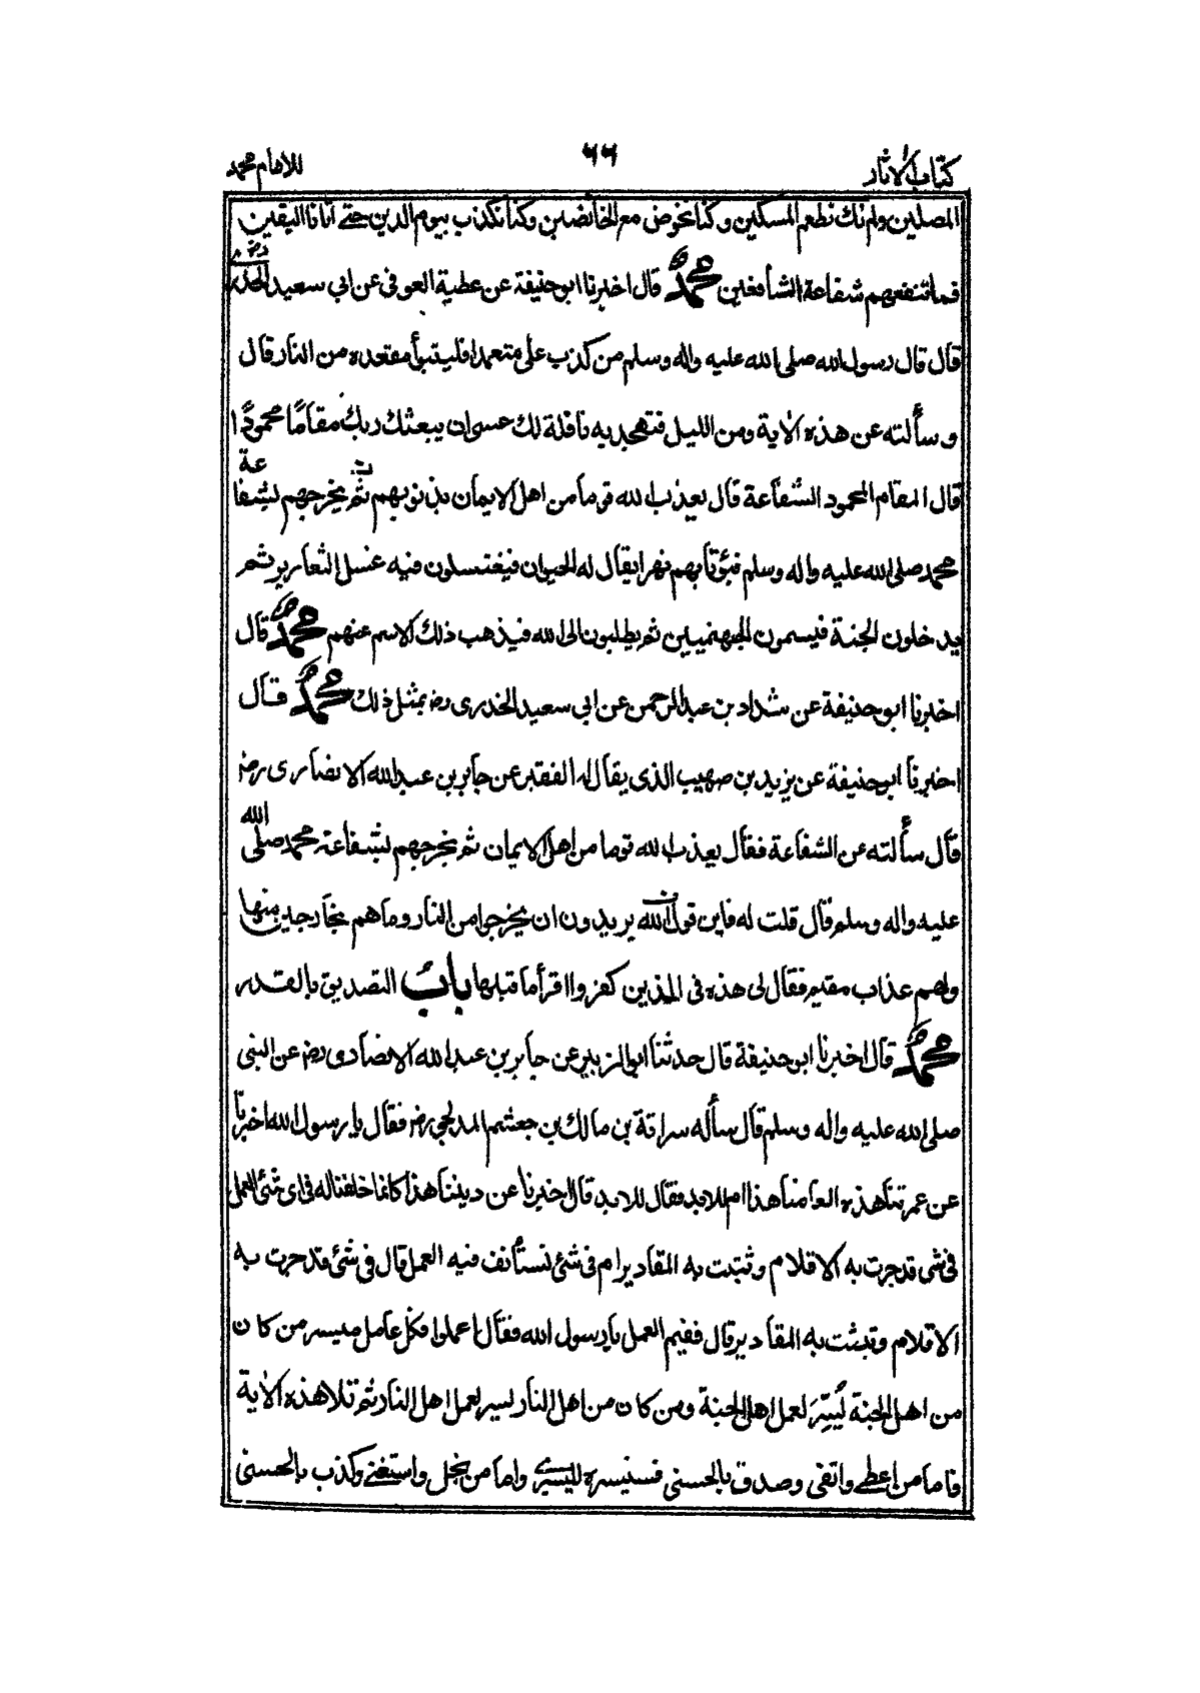 كتاب الاثار ٦٦ للامام محمد
المصلين ولم نك نطعم المسكين وكنا نخوض مع الخائضين وكنا نكذب بيوم الدين حتى اتانا اليقين
فما تنفعهم شفاعة الشافعين محمدٌ قال اخبرنا ابو حنيفة عن عطية العوفي عن ابي سعيد الخدري رضـ
قال قال رسول الله صلى الله عليه واله وسلم من كذب علىّ متعمدا فليتبوأ مقعده من النار قال
وسألته عن هذه الاية ومن الليل فتهجد به نافلة لك عسى ان يبعثك ربك مقامًا محمودًا
قال المقام المحمود الشفاعة قال يعذب الله قوما من اهل الايمان بذنوبهم ثم يخرجهم بشفاعة
محمد صلى الله عليه واله وسلم فيؤتا بهم نهرا يقال له الحيوان فيغتسلون فيه غسل الثعارير ثم
يدخلون الجنة فيسمون الجهنميين ثم يطلبون الى الله فيذهب ذلك الاسم عنهم محمدٌ قال
اخبرنا ابو حنيفة عن شداد بن عبد الرحمن عن ابي سعيد الخدرى رضـ بمثل ذلك محمدٌ قال
اخبرنا ابو حنيفة عن يزيد بن صهيب الذى يقال له الفقير عن جابر بن عبد الله الانصارى رضـ
قال سألته عن الشفاعة فقال يعذب الله قوما من اهل الايمان ثم يخرجهم بشفاعة محمد صلى الله
عليه واله وسلم قال قلت له فاين قول الله يريدون ان يخرجوا من النار وما هم بخارجين منها
ولهم عذاب مقيم فقال لى هذه فى الذين كفروا اقرأ ما قبلها بابٌ التصديق بالقدر
محمدٌ قال اخبرنا ابو حنيفة قال حدثنا ابو الزبير عن جابر بن عبد الله الانصارى رضـ عن النبى
صلى الله عليه واله وسلم قال سأله سراقة بن مالك بن جعشم المدلجي رضـ فقال يا رسول الله اخبرنا
عن عمرتنا هذه العامنا هذا ام للابد فقال للابد قال اخبرنا عن ديننا هذا كانما خلقنا له فى اى شئ العمل
فى شى قد جرت به الاقلام وثبتت به المقادير ام فى شئ نستأنف فيه العمل قال فى شئ قد جرت به
الاقلام وثبتت به المقادير قال ففيم العمل يا رسول الله فقال اعملوا فكل عامل ميسر من كان
من اهل الجنة يُسِّرَ لعمل اهل الجنة ومن كان من اهل النار يسر لعمل اهل النار ثم تلا هذه الاية
فاما من اعطى واتقى وصدق بالحسنى فسنيسره لليسرى واما من بخل واستغنى وكذب بالحسنى